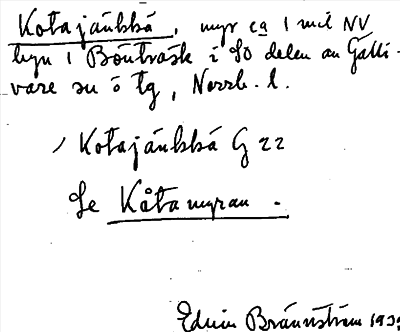 Kotajänkkä, myr ca 1 mil NV
byn i Böntträsk i SO delen av Gälli-
vare sn o tg, Norrb. l.
Kotajänkkä G 22
Se Kåtamyran.
Edvin Brännström